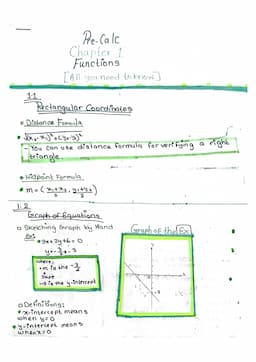 Pre-Calc
Chapter 1
Functions
[All you need to know]
1.1
Rectangular Coordinates
Distance Formula
You can use distance formula for verifying a right triangle
Midpoint Formula
1.2
Graph of Equations
Sketching Graph by Hand
Ex:
Graph of the Ex
where,
m is the
-3 is the y-intercept
Definitions:
x-intercept means
when y=0
y-intercept means
when x=0